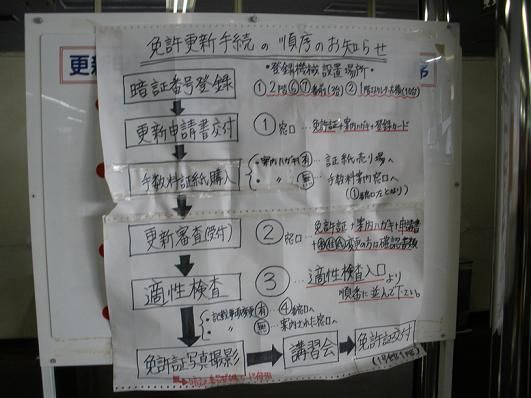 免許更新手続の順序のお知らせ
更新
暗証番号登録
・登録機械設置場所・
①2階⑥⑦番前(3台) ②1階
更新申請書交付
①窓口…免許証+案内ハガキ+登録カード
手数料証紙購入
・案内ハガキ有…証紙売り場へ
・〃無…手数料案内窓口へ
(①番窓口となり)
更新審査(受付)
②窓口…免許証+案内ハガキ+申請書
変更の方は確認書類
適性検査
③…適性検査入口より
順番に並んで下さい。
・記載事項変更有…④窓口へ
・〃無…案内された窓口へ
免許証写真撮影
講習会
免許証交付